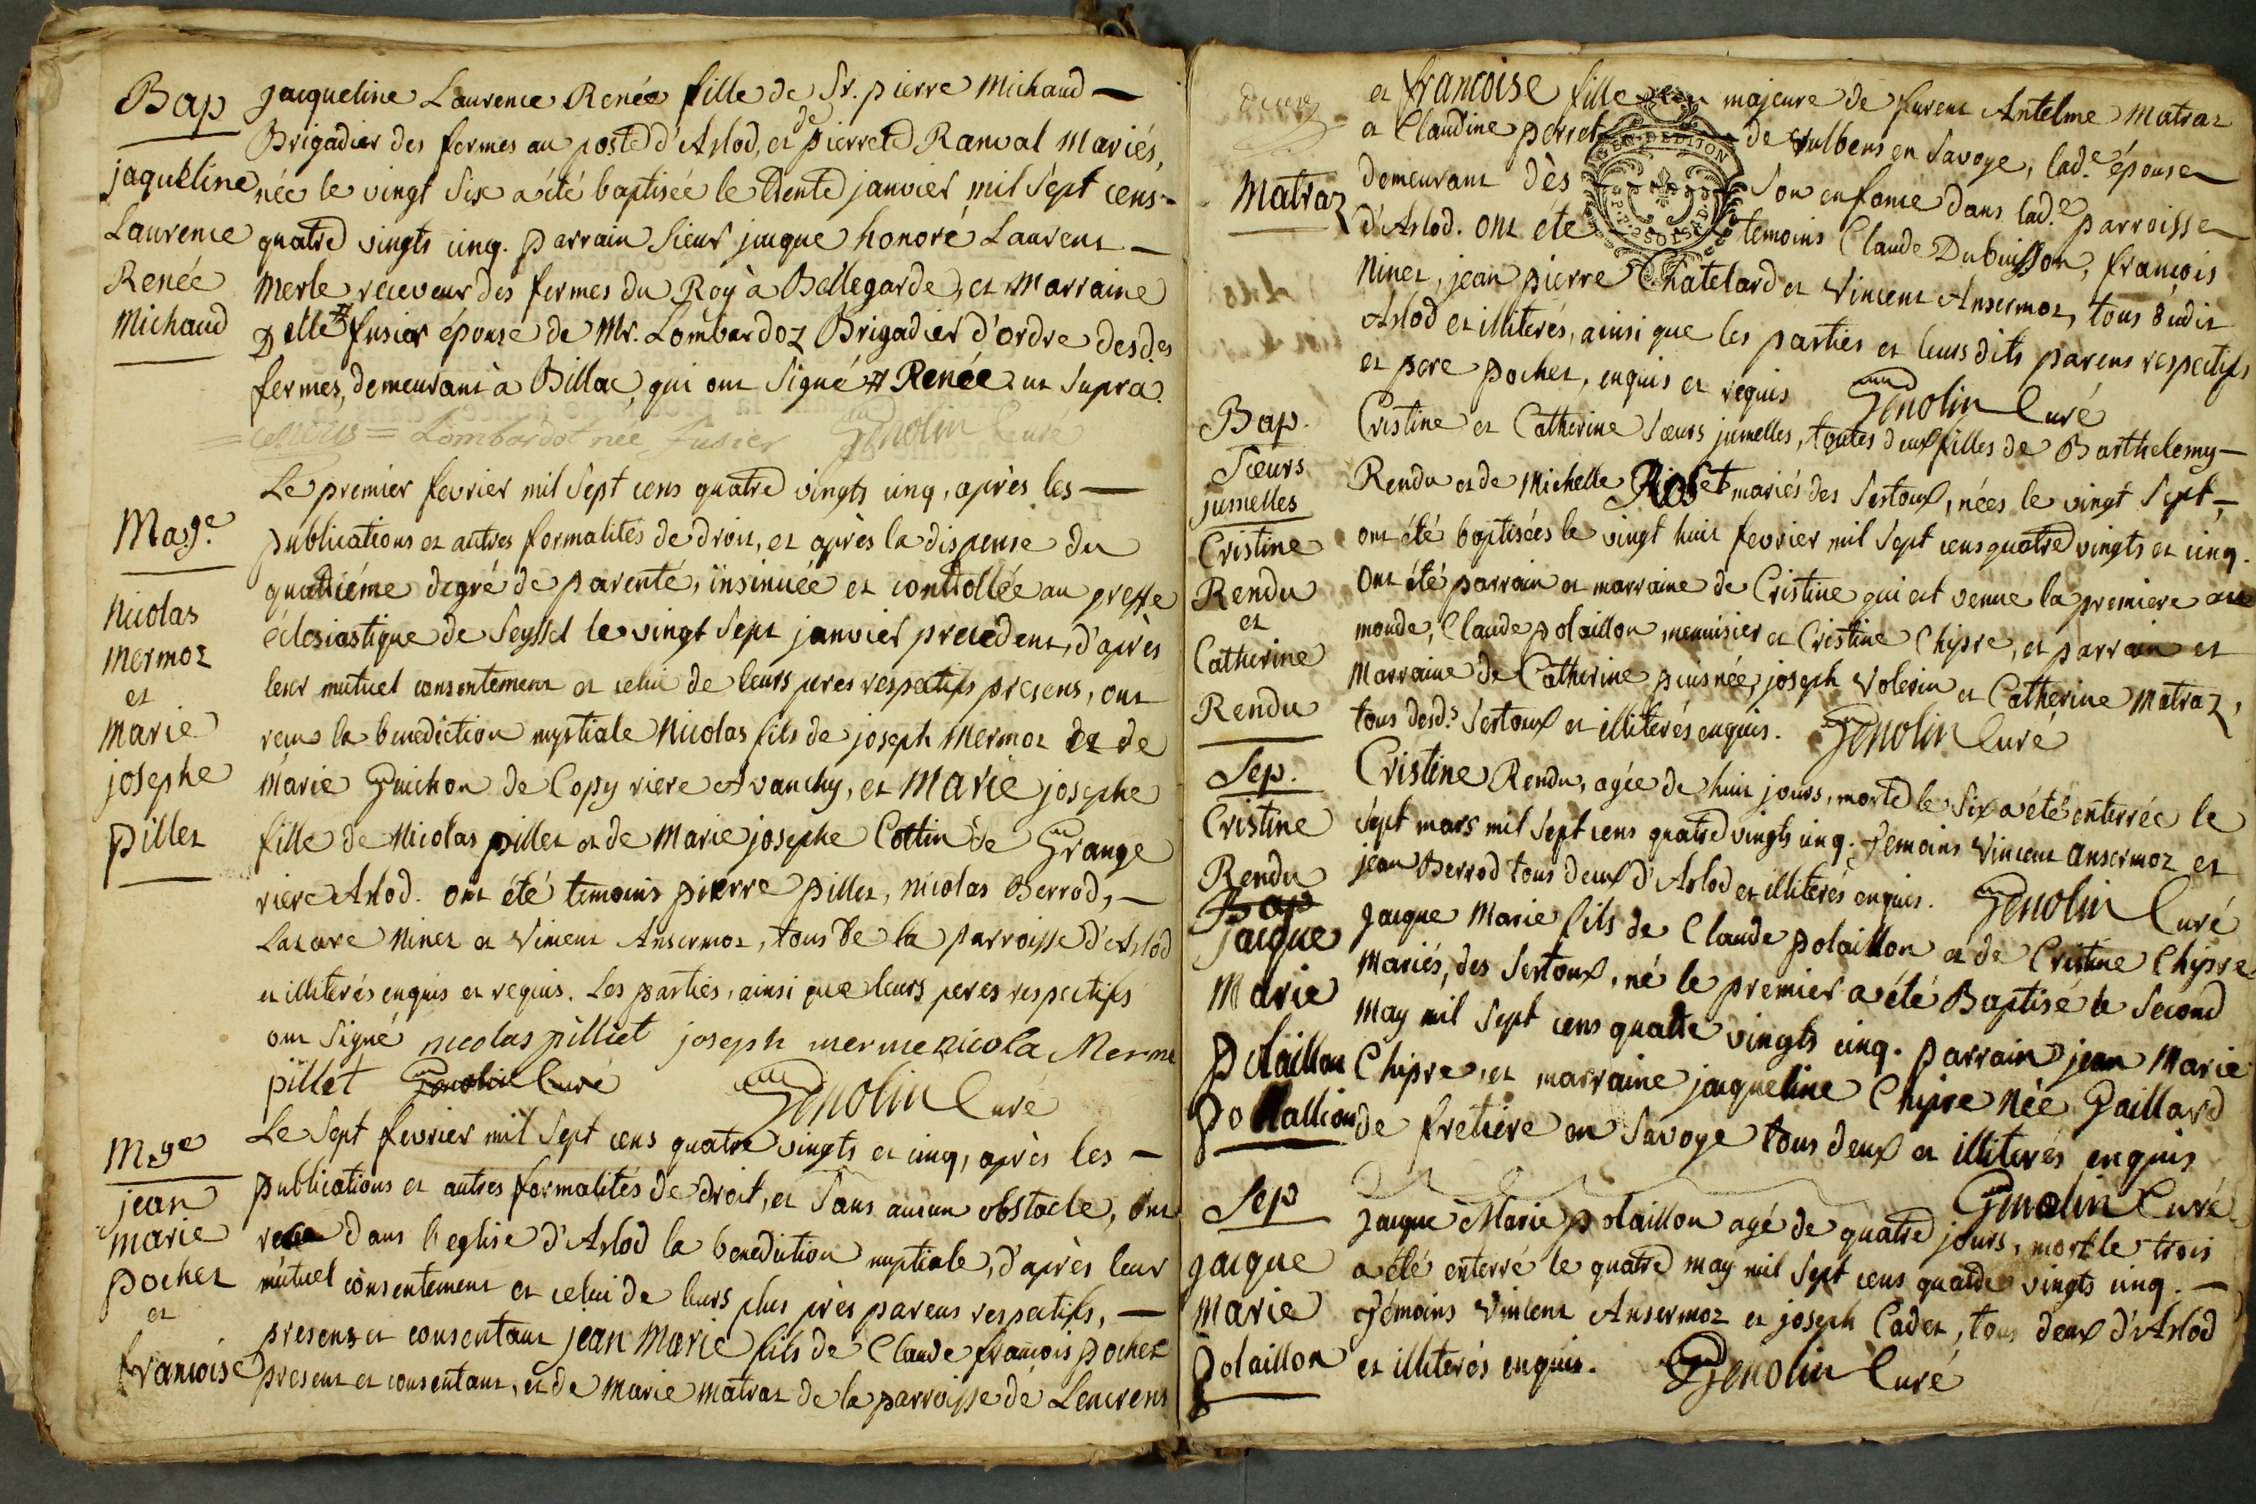 Bap
jaqueline
Laurence
Renée
Michaud
Jacqueline Laurence Renée fille de Sr. pierre Michaud —
Brigadier des fermes au poste d'Arlod, et de pierrete Ranval Mariés,
née le vingt Six a été baptisée le trente janvier mil Sept cens -
quatre vingts cinq. parrain Sieur jacque honoré Laurent —
Merle receveur des fermes du Roy à Bellegarde, et Marraine
Delle # fusier épouse de Mr. Lombardoz Brigadier d'ordre desd.es
fermes, demeurant à Billac, qui ont Signé # Renée ut Supra.
Lombardot née fusier Genolin Curé
Mag.e
Nicolas
Mermoz
et
Marie
josephe
pillet
Le premier fevrier mil Sept cens quatre vingts cinq, après les —
publications et autres formalités de droit, et après la dispense du
quatriéme degré de parenté, insinuée et controllée au greffe
éclesiastique de Seyssel le vingt Sept janvier precedent, d'après
leur mutuel consentement et celui de leurs peres respectifs presens, ont
recu la benediction nuptiale Nicolas fils de joseph Mermoz et de
Marie Guichon de Copy riere Avanchy, et Marie josephe
fille de Nicolas pillet et de Marie josephe Cottin de Grange
riere Arlod. ont été temoins pierre pillet, nicolas Berrod, —
Lazare Ninet et Vincent Ansermoz, tous de la parroisse d'Arlod
et illiterés enquis et requis. Les parties, ainsi que leurs peres respectifs
ont Signé nicolas pilliet joseph merme nicola Merme
pillet Genolin Curé Genolin Curé
M.ge
jean
marie
pochet
et
francoise
Le Sept fevrier mil Sept cens quatre vingts et cinq, après les —
publications et autres formalités de droit, et Sans aucun obstacle, ont
recu dans l'eglise d'Arlod la benediction nuptiale, d'après leur
mutuel consentement et celui de leurs plus près parens respectifs, —
presens et consentans jean Marie fils de Claude francois pochet
present et consentant, et de Marie matraz de la parroisse de Lencrens
Matraz
et francoise fille majeure de furent Antelme Matraz
et Claudine perret de Vulbens en Savoye, lad.e épouse
demeurant dès Son enfance dans lad.e parroisse
d'Arlod. ont été temoins Claude Dubuisson, françois
Ninet, jean pierre Chatelard et Vincent Ansermoz, tous dudit
Arlod et illiterés, ainsi que les parties et leurs dits parens respectifs
et pere pochet, enquis et requis Genolin Curé
GEN. D'EDITON
Bap.
Sœurs
jumelles
Cristine
Rendu
et
Catherine
Rendu
Cristine et Catherine Sœurs jumelles, toutes deux filles de Barthelemy —
Rendu et de Michelle mariés des Sertoux, nées le vingt Sept —
ont été baptisées le vingt huit fevrier mil Sept cens quatre vingts et cinq.
Ont été parrain et marraine de Cristine qui est venue la premiere au
monde, Claude polaillon menuisier et Cristine Chipre, et parrain et
Marraine de Catherine puisnée, joseph Volerin et Catherine Matraz,
tous desd.s Sertoux et illiterés enquis. Genolin Curé
Sep.
Cristine
Rendu
Cristine Rendu, agée de huit jours, morte le Six a été enterrée le
Sept mars mil Sept cens quatre vingts cinq. Temoins Vincent Ansermoz et
jean Berrod tous deux d'Arlod et illiterés enquis. Genolin Curé
Bap
jacque
Marie
Polaillon
Po lallion
Jacque Marie fils de Claude polaillon et de Cristine Chipre
Mariés, des Sertoux, né le premier a été Baptisé le Second
May mil Sept cens quatre vingts cinq. parrain jean Marie
Chipre, et marraine jacqueline Chipre Née Gaillard
de fretiere en Savoye tous deux et illiterés enquis
Genolin Curé
Sep
Jacque
Marie
Polaillon
Jacque Marie polaillon agé de quatre jours, mort le trois
a été enterré le quatre may mil Sept cens quatre vingts cinq. —
Témoins Vincent Ansermoz et joseph Cadet, tous deux d'Arlod
et illiterés enquis. Genolin Curé